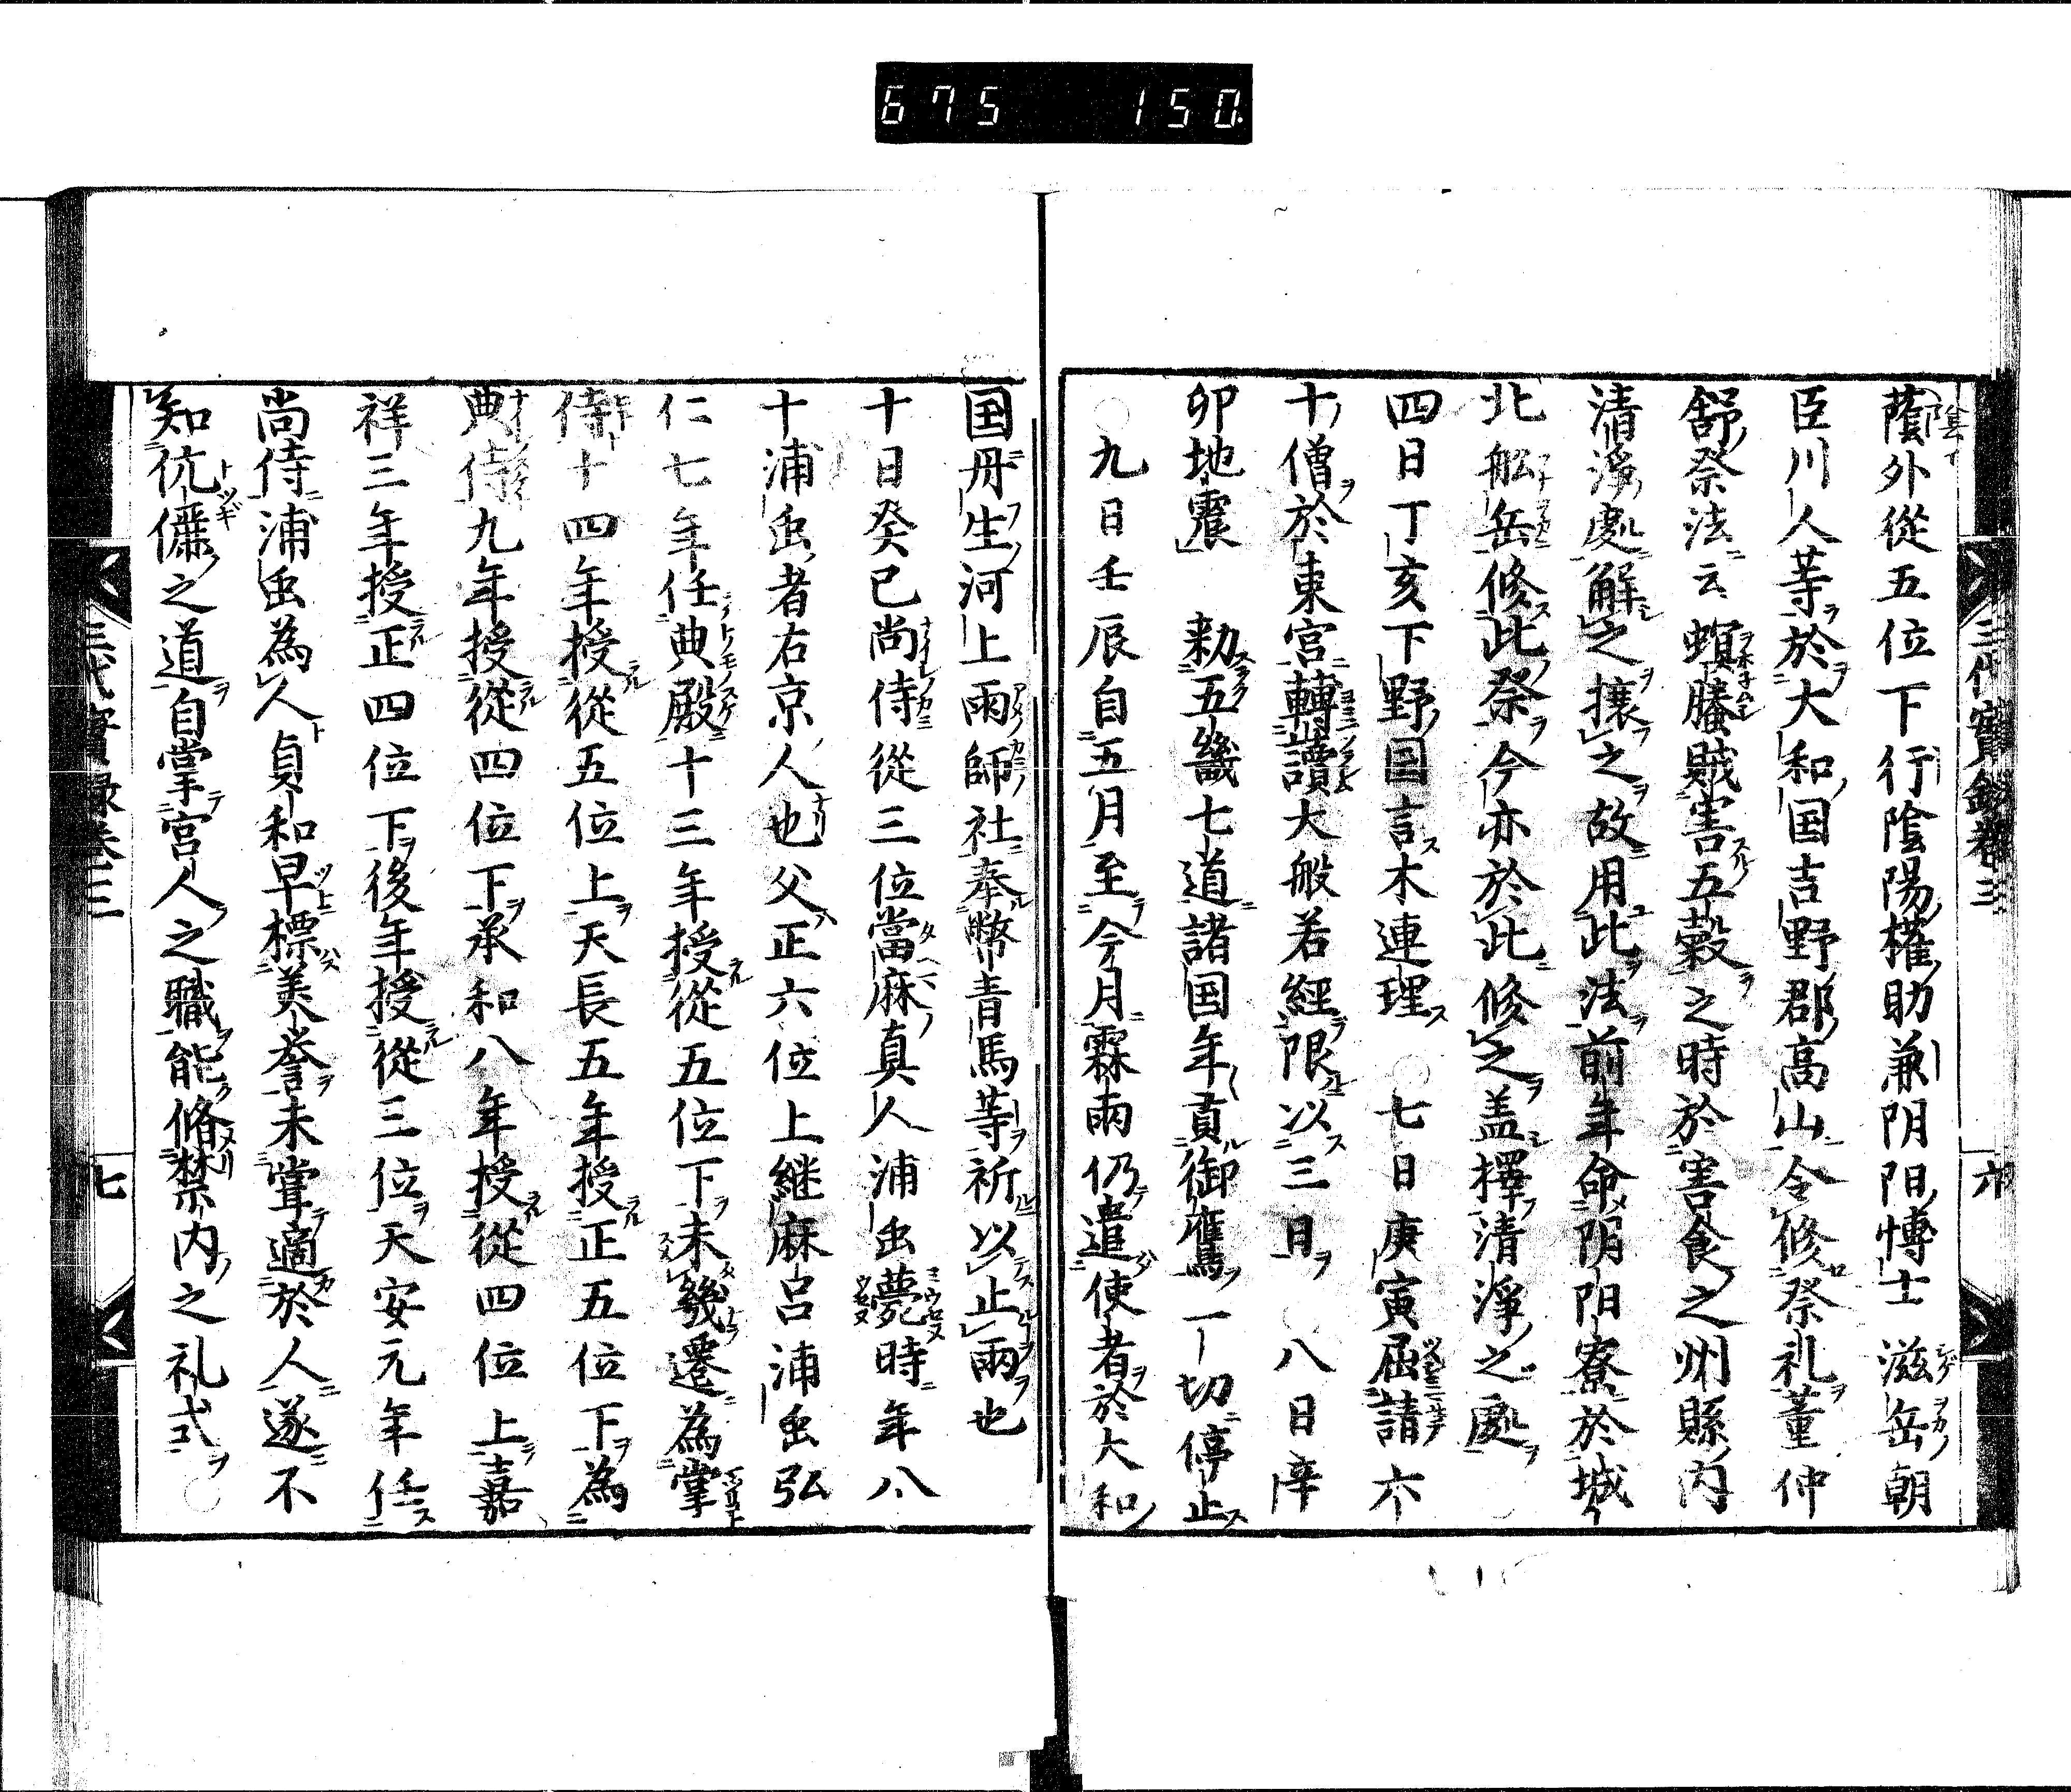 675 150
三代實録卷三 六
蔭外從五位下行陰陽權助兼阴阳博士滋岳朝
臣川人等於大和国吉野郡高山令修祭礼董仲
舒祭法云螟螣賊害五穀之時於害食之州縣内
清淨處解之攘之故用此法前年命阴阳寮於城
北舩岳修此祭今亦於此修之盖擇清淨之處
四日丁亥下野国言木連理 ○七日庚寅屈請六
十僧於東宮轉讀大般若經限以三日 八日辛
卯地震 勅五畿七道諸国年貢御鷹一切停止
○九日壬辰自五月至今月霖雨仍遣使者於大和
国丹生河上雨師社奉幣青馬等祈以止雨也
十日癸巳尚侍從三位當麻真人浦虫薨時年八
十浦虫者右京人也父正六位上継麻呂浦虫弘
仁七年任典殿十三年授從五位下未幾遷為掌
侍十四年授從五位上天長五年授正五位下為
典侍九年授從四位下承和八年授從四位上嘉
祥三年授正四位下後年授從三位天安元年任
尚侍浦虫為人貞和早標美誉未甞適於人遂不
知伉儷之道自掌宮人之職能脩禁内之礼式○
三代實録卷三 七